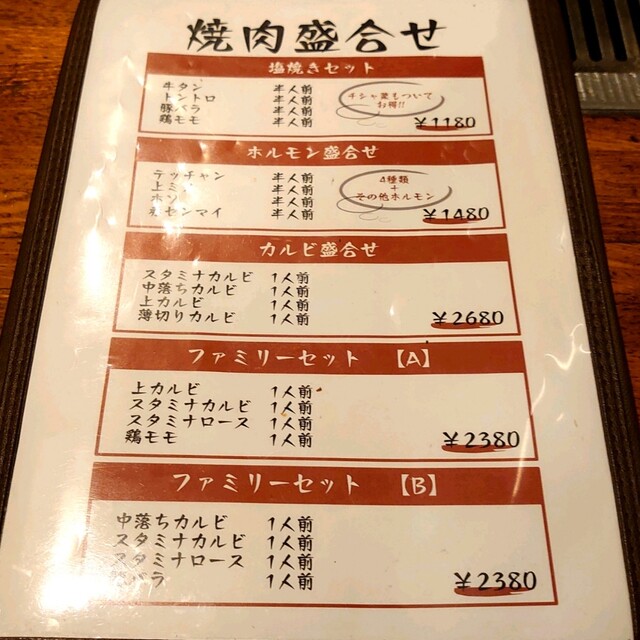 焼肉盛合せ
塩焼きセット
牛タン 半人前
トントロ 半人前
豚バラ 半人前
鶏モモ 半人前
チシャ菜もついて
お得!!
¥1180
ホルモン盛合せ
テッチャン 半人前
上ミノ 半人前
ホソ 半人前
センマイ 半人前
4種類
+
その他ホルモン
¥1480
カルビ盛合せ
スタミナカルビ 1人前
中落ちカルビ 1人前
上カルビ 1人前
薄切りカルビ 1人前
¥2680
ファミリーセット 【A】
上カルビ 1人前
スタミナカルビ 1人前
スタミナロース 1人前
鶏モモ 1人前
¥2380
ファミリーセット 【B】
中落ちカルビ 1人前
スタミナカルビ 1人前
スタミナロース 1人前
バラ 1人前
¥2380